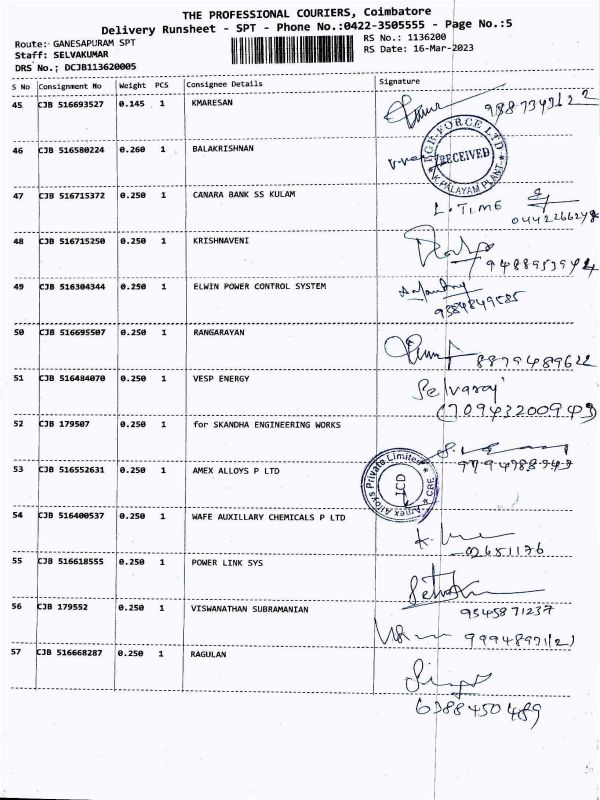 THE PROFESSIONAL COURIERS, Coimbatore
Delivery Runsheet - SPT - Phone No.:0422-3505555 - Page No.:5
Route: GANESAPURAM SPT
RS No.: 1136200
Staff: SELVAKUMAR
RS Date: 16-Mar-2023
DRS No.; DCJB113620005
S No Consignment No Weight PCS Consignee Details Signature
45 CJB 516693527 0.145 1 KMARESAN
46 CJB 516580224 0.260 1 BALAKRISHNAN
RECEIVED
PALAYAM PLANT
47 CJB 516715372 0.250 1 CANARA BANK SS KULAM
L. TIME
48 CJB 516715250 0.250 1 KRISHNAVENI
49 CJB 516304344 0.250 1 ELWIN POWER CONTROL SYSTEM
9384849585
50 CJB 516695507 0.250 1 RANGARAYAN
8879489622
51 CJB 516484070 0.250 1 VESP ENERGY
Selvaraj
(70943200943)
52 CJB 179507 0.250 1 for SKANDHA ENGINEERING WORKS
53 CJB 516552631 0.250 1 AMEX ALLOYS P LTD
Amex Alloys Private Limited
CBE
54 CJB 516400537 0.250 1 WAFE AUXILLARY CHEMICALS P LTD
02651176
55 CJB 516618555 0.250 1 POWER LINK SYS
9345871237
56 CJB 179552 0.250 1 VISWANATHAN SUBRAMANIAN
57 CJB 516668287 0.250 1 RAGULAN
6388450489